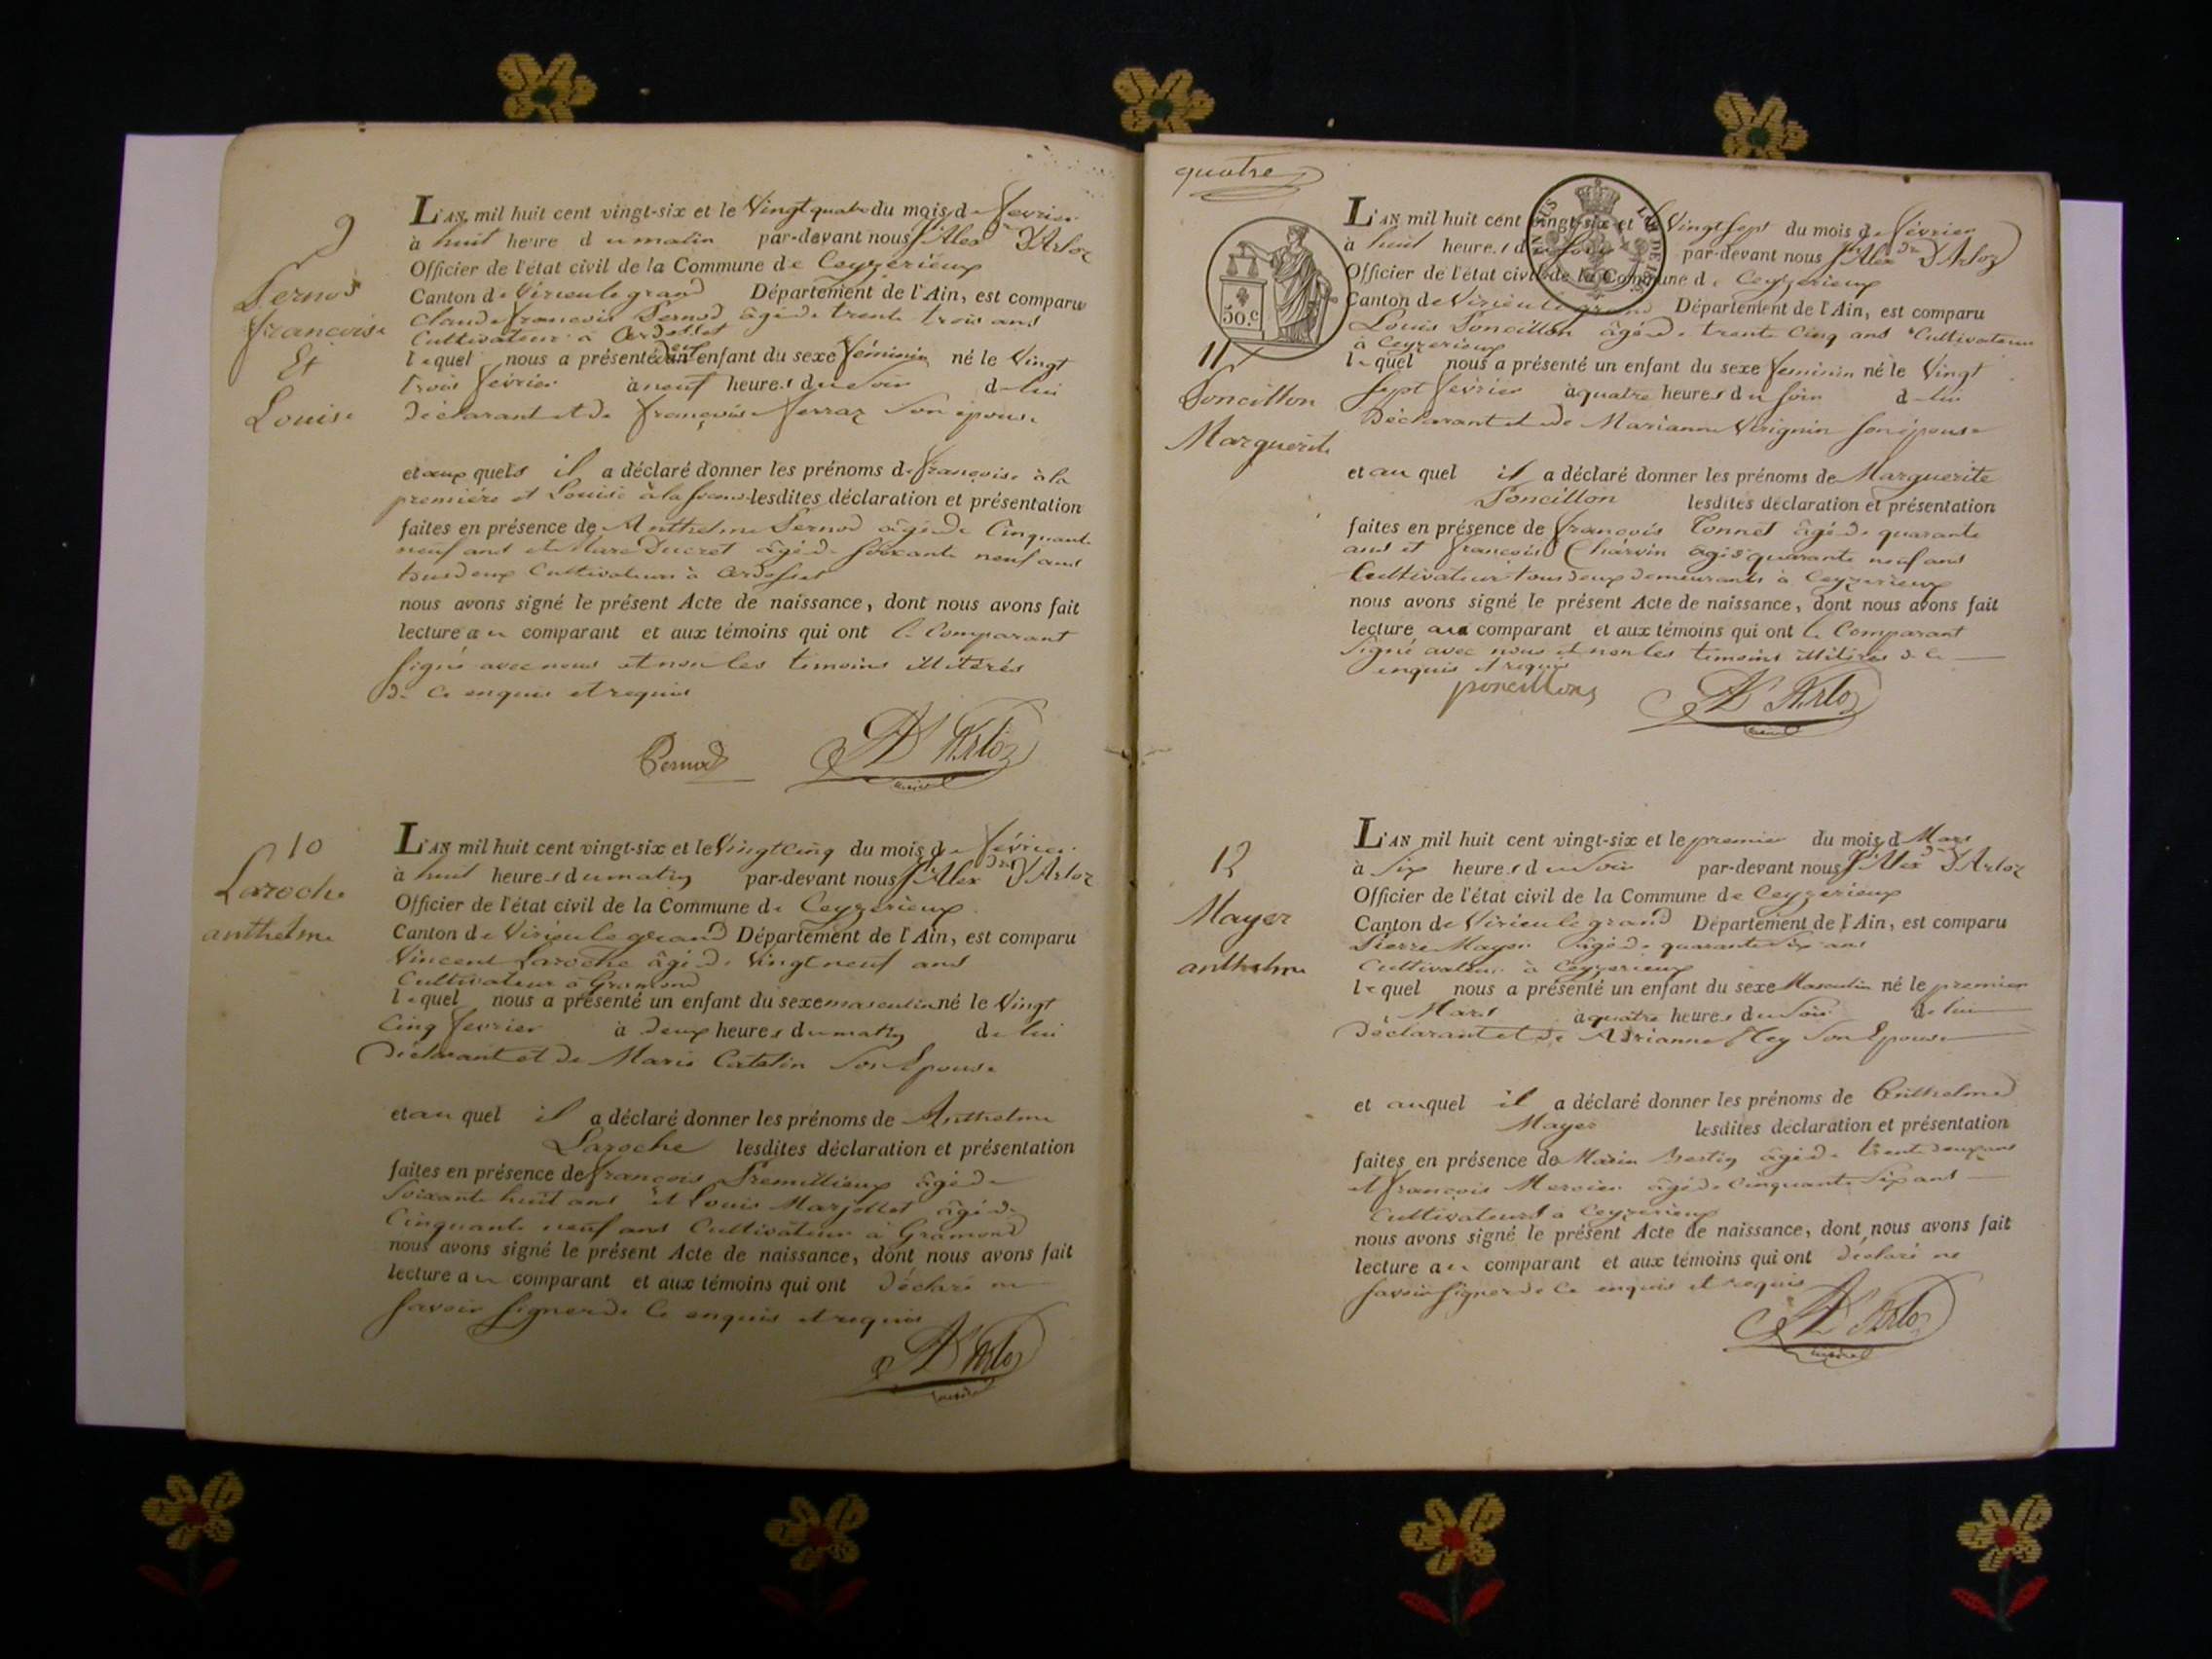 9
Pernod
françoise
Et
Louise
L'AN mil huit cent vingt-six et le Vingt quatre du mois de fevrier
à huit heure du matin par-devant nous Alexdre D'Arloz
Officier de l'état civil de la Commune de Ceyzerieux
Canton de Virieu le grand Département de l'Ain, est comparu
Claude francois Pernod âgé de trente trois ans
Cultivateur à Ardosset
lequel nous a présenté deux enfant du sexe féminin né le Vingt
trois fevrier à neuf heures du Soir de lui
déclarant et de françoise ferraz Son épouse
et aux quels il a déclaré donner les prénoms de françoise à la
première et Louise à la seconde lesdites déclaration et présentation
faites en présence de Anthelme Pernod âgé de Cinquante
neuf ans et Ducret âgé de Soixante neuf ans
tous deux Cultivateurs à Ardosset
nous avons signé le présent Acte de naissance, dont nous avons fait
lecture au comparant et aux témoins qui ont le Comparant
signé avec nous et non les témoins illitérés
de ce enquis et requis
Pernod D'Arloz
10
Laroche
anthelme
L'AN mil huit cent vingt-six et le Vingt cinq du mois de février
à huit heures du matin par-devant nous Alexdre D'Arloz
Officier de l'état civil de la Commune de Ceyzerieux
Canton de Virieu le grand Département de l'Ain, est comparu
Vincent Laroche âgé de Vingt neuf ans
Cultivateur à Gramond
lequel nous a présenté un enfant du sexe masculin né le Vingt
Cinq fevrier à deux heures du matin de lui
déclarant et de Marie Catelin Son Epouse
et au quel il a déclaré donner les prénoms de Anthelme
Laroche lesdites déclaration et présentation
faites en présence de françois Premillieux âgé de
Soixante huit ans et Louis Marjollet âgé de
Cinquante neuf ans Cultivateur à Gramond
nous avons signé le présent Acte de naissance, dont nous avons fait
lecture au comparant et aux témoins qui ont déclaré ne
Savoir Signer de Ce enquis et requis
D'Arloz
quatre
50.c
11
Poncillon
Marguerite
L'AN mil huit cent vingt-six et Vingt Sept du mois de février
à huit heures du soir par-devant nous Alexdre D'Arloz
Officier de l'état civil de la Commune de Ceyzerieux
Canton de Virieu le grand Département de l'Ain, est comparu
Louis Poncillon âgé de trente Cinq ans Cultivateur
à Ceyzerieux
lequel nous a présenté un enfant du sexe feminin né le Vingt
Sept fevrier à quatre heures du soir de lui
Déclarant et de Marianne Virignin son épouse
et au quel il a déclaré donner les prénoms de Marguerite
Poncillon lesdites déclaration et présentation
faites en présence de françois Tonnet âgé de quarante
ans et françois Charvin âgé de quarante neuf ans
Cultivateur tous deux demeurants à Ceyzerieux
nous avons signé le présent Acte de naissance, dont nous avons fait
lecture au comparant et aux témoins qui ont le Comparant
Signé avec nous et non les témoins illitérés de ce
enquis et requis
poncillon D'Arloz
12
Mayer
anthelme
L'AN mil huit cent vingt-six et le premier du mois d Mars
à Six heures du Soir par-devant nous Alexdre D'Arloz
Officier de l'état civil de la Commune de Ceyzerieux
Canton de Virieu le grand Département de l'Ain, est comparu
Pierre Mayer âgé de quarante Six ans
Cultivateur à Ceyzerieux
lequel nous a présenté un enfant du sexe Masculin né le premier
Mars à quatre heures du Soir de lui
Déclarant et de Adrianne Rey Son Epouse
et auquel il a déclaré donner les prénoms de Anthelme
Mayer lesdites déclaration et présentation
faites en présence de Marin Bertin âgé de trente deux ans
et françois Mercier âgé de Cinquante Six ans
Cultivateurs à Ceyzerieux
nous avons signé le présent Acte de naissance, dont nous avons fait
lecture au comparant et aux témoins qui ont déclaré ne
Savoir Signer de Ce enquis et requis
D'Arloz